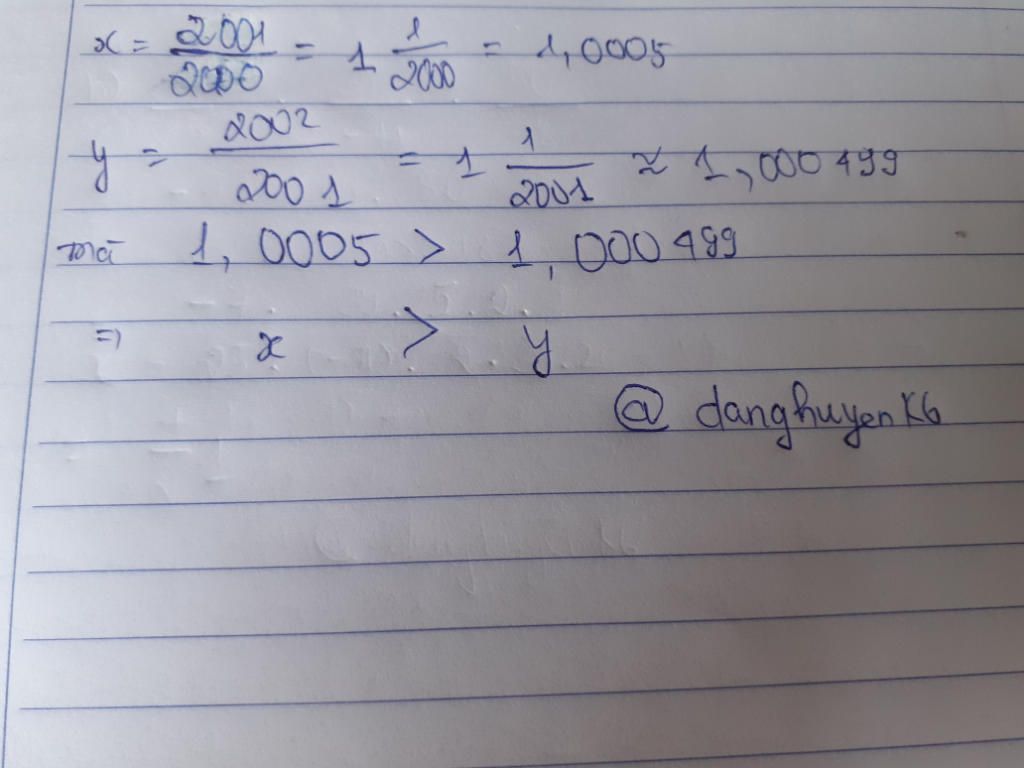 x = 2001/2000 = 1 1/2000 = 1,0005
y = 2002/2001 = 1 1/2001 ≈ 1,000499
mà 1,0005 > 1,000499
=> x > y
@ danghuyenk6